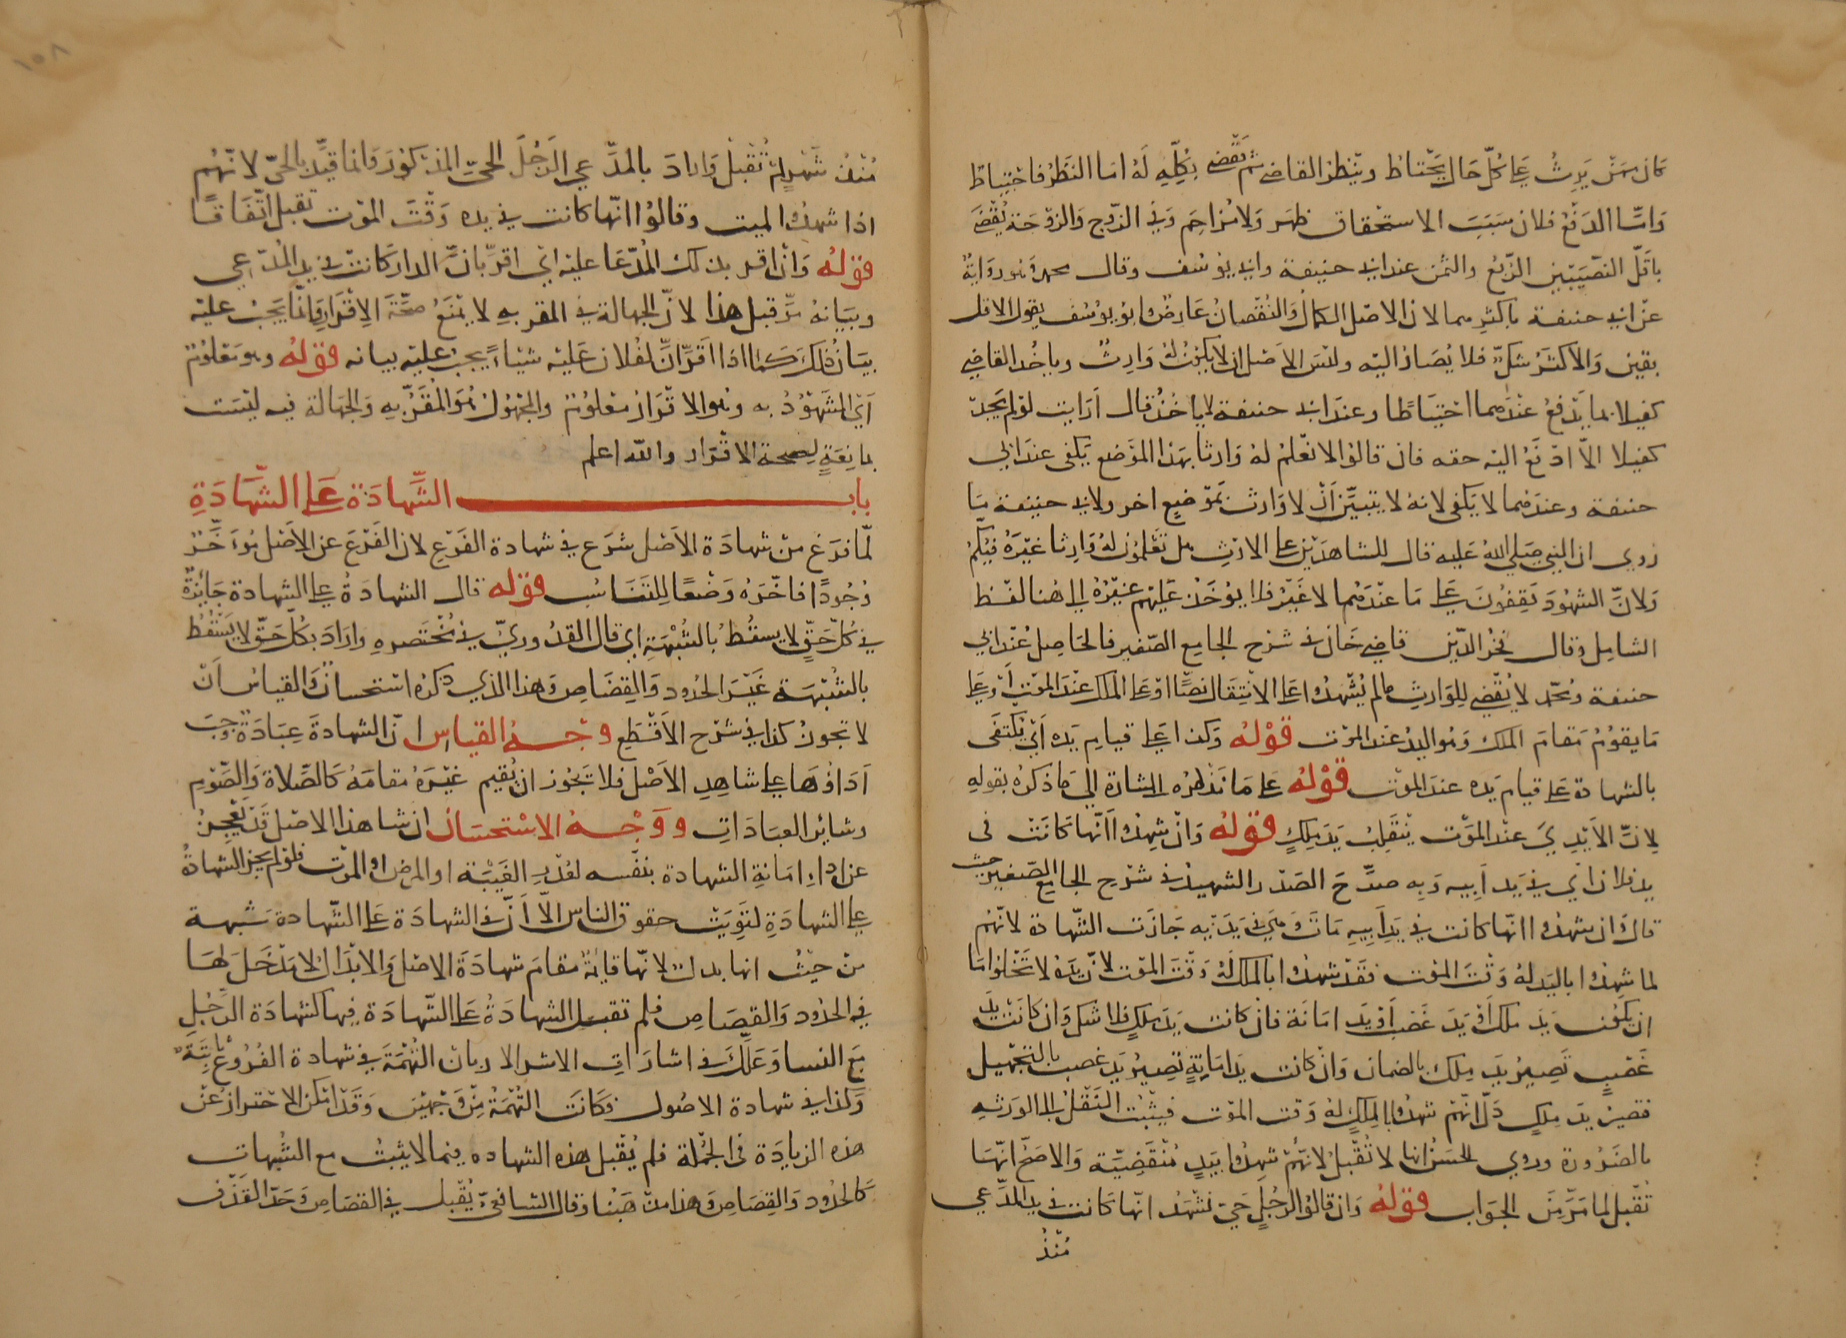 كان ممن يرث على كل حال يحتاط وينظر القاضي ثم يقضي بكله له اما النظر فاحتياط
واما الدفع فلان سبب الاستحقاق ظهر ولا مزاحم وفي الزوج والزوجة يقضي
باقل النصيبين الربع والثمن عند ابي حنيفة وابي يوسف وقال محمد وهو رواية
عن ابي حنيفة باكثرهما لان الاصل الكمال والنقصان عارض وابو يوسف يقول الاقل
يقين والاكثر شك فلا يصار اليه وليس الاصل ان لا يكون له وارث وياخذ القاضي
كفيلا بما يدفع عندهما احتياطا وعند ابي حنيفة لا ياخذ قال ارايت لو لم يجد
كفيلا الا ادفع اليه حقه فان قالوا لا نعلم له وارثا بهذا الموضع يكفي عند ابي
حنيفة وعندهما لا يكفي لانه لا يتبين ان لا وارث بموضع اخر ولابي حنيفة ما
روي ان النبي صلى الله عليه قال للشاهدين على الارث هل تعلمون له وارثا غيره فيكم
ولان الشهود يقفون على ما عندهما لا غير فلا يوخذ عليهم غيره الى هنا لفظ
الشامل وقال فخر الدين قاضي خان في شرح الجامع الصغير فالحاصل عند ابي
حنيفة ومحمد لا يقضي للوارث ما لم يشهدوا على الانتقال نصا او على الملك عند الموت او على
ما يقوم مقام الملك وهو اليد عند الموت قوله وكذا على قيام يده اي يكتفى
بالشهادة على قيام يده عند الموت قوله على ما نذكره اشارة الى ما ذكره بقوله
لان الايدي عند الموت ينقلب يد ملك قوله وان شهدوا انها كانت في
يد فلان اي في يد ابيه وبه صرح الصدر الشهيد في شرح الجامع الصغير حيث
قال وان شهدوا انها كانت في يد ابيه مات وهي في يديه جازت الشهادة لانهم
لما شهدوا باليد له وقت الموت فقد شهدوا بالملك له وقت الموت لان يده لا تخلوا اما
ان يكون يد ملك او يد غصب او يد امانة فان كانت يد ملك فلا اشكال وان كانت يد
غصب تصير يد ملك بالضمان وان كانت يد امانة تصير يد غصب بالتجهيل
فتصير يد ملك دل انهم شهدوا بالملك له وقت الموت فيثبت النقل الى الورثه
بالضرورة وروي الحسن انها لا تقبل لانهم شهدوا بيد منقضية والاصح انها
تقبل لما مر من الجواب قوله وان قالوا لرجل حي نشهد انها كانت في يد المدعي
منذ
منذ شهر لم تقبل واراد بالمدعي الرجل الحي المذكور وانما قيد بالحي لانهم
اذا شهدوا لميت وقالوا انها كانت في يده وقت الموت تقبل اتفاقا
قوله وان اقر بذلك المدعا عليه اي اقر بان الدار كانت في يد المدعي
وبيانه مر قبل هذا لان الجهالة في المقر به لا يمنع صحة الاقرار وانما يجب عليه
بيان ذلك كما اذا اقر ان لفلان عليه شيئا يجب عليه بيانه قوله وهو معلوم
اي المشهود به وهو الاقرار معلوم والمجهول هو المقر به والجهالة فيه ليست
بمانعة لصحة الاقرار والله اعلم
باب الشهادة على الشهادة
لما فرغ من شهادة الاصل شرع في شهادة الفرع لان الفرع عن الاصل مؤخر
وجودا فاخره وضعا للتناسب قوله قال الشهادة على الشهادة جايزة
في كل حق لا يسقط بالشبهة اي قال القدوري في مختصره واراد بكل حق لا يسقط
بالشبهة غير الحدود والقصاص وهذا الذي ذكره استحسان والقياس ان
لا تجوز كذا في شرح الاقطع وجه القياس ان الشهادة عبادة وجب
اداؤها على شاهد الاصل فلا تجوز ان يقيم غيره مقامه كالصلاة والصوم
وسائر العبادات ووجه الاستحسان ان شاهد الاصل قد يعجز
عن اداء امانة الشهادة بنفسه لعذر الغيبة او المرض او الموت فلو لم يجز الشهادة
على الشهادة لتويت حقوق الناس الا ان في الشهادة على الشهادة شبهة
من حيث انها بدل لانها قائمة مقام شهادة الاصل والابدال لا مدخل لها
في الحدود والقصاص فلم تقبل الشهادة على الشهادة فيها كشهادة الرجل
مع النسا وعلل في اشارات الاسرار بان التهمة في شهادة الفروع ثابتة
وكذا في شهادة الاصول فكانت التهمة من وجهين وقد امكن الاحتراز عن
هذه الزيادة في الجملة فلم يقبل هذه الشهاده فيما لا يثبت مع الشبهات
كالحدود والقصاص وهذا مذهبنا وقال الشافعي يقبل في القصاص وحد القذف
١٥٨